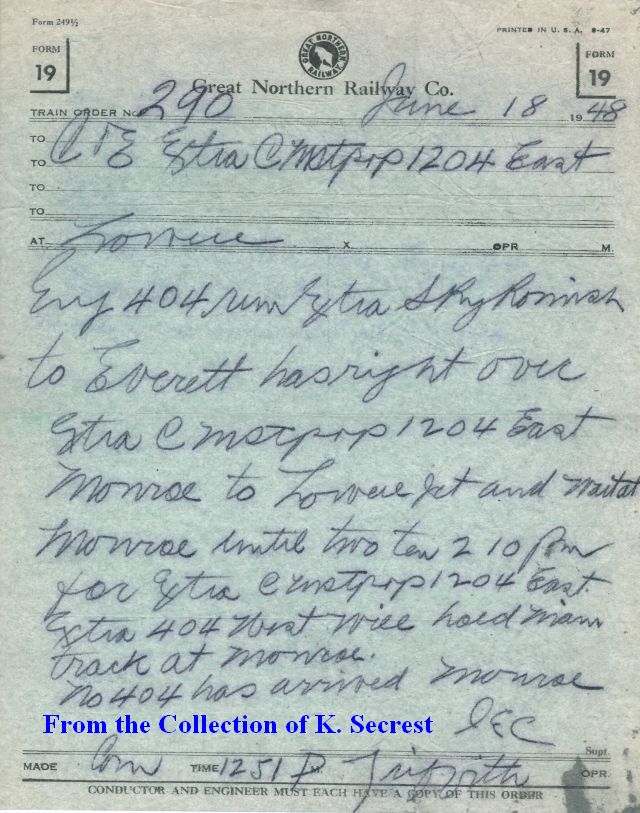 Form 249½
PRINTED IN U. S. A. 8-47
FORM
19
GREAT NORTHERN RAILWAY
FORM
19
Great Northern Railway Co.
TRAIN ORDER No. 290 June 18 1948
TO
TO C & E Extra CMStP&P 1204 East
TO
TO
AT Lowell X OPR M.
Eng 404 run Extra Skykomish
to Everett has right over
Extra CMStP&P 1204 East
Monroe to Lowell Jct and wait at
Monroe until two ten 2 10 pm
for Extra CMStP&P 1204 East.
Extra 404 West will hold main
track at Monroe.
No 404 has arrived Monroe
From the Collection of K. Secrest
Supt.
MADE Com TIME 1251 P M. Griffith OPR.
CONDUCTOR AND ENGINEER MUST EACH HAVE A COPY OF THIS ORDER